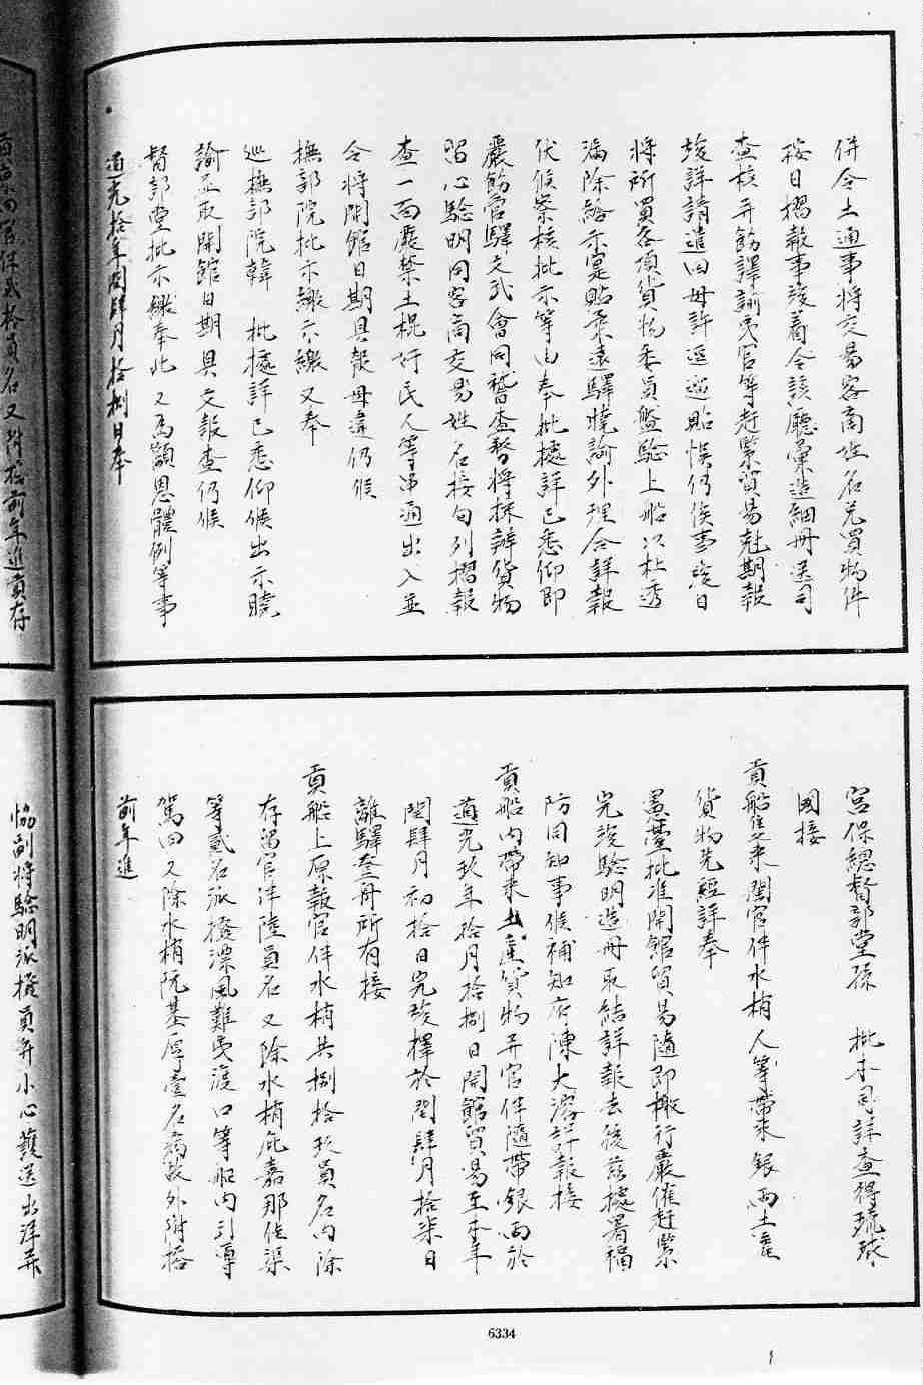 併令土通事將交易客商姓名兌買物件
按日摺報事竣着令該廳彙造細冊送司
查核并飭譯諭夷官等赶緊貿易尅期報
竣詳請遣回毋許逗遛貽悞仍俟事竣日
將所買各項貨物委員盤驗上船以杜透
漏除給示寔貼柔遠驛曉諭外理合詳報
伏候察核批示等由奉批據詳已悉仰即
嚴飭官驛文武會同稽查務將採辦貨物
留心驗明同客商交易姓名按旬列摺報
查一面嚴禁土棍行民人等串通出入並
令將開館日期具報毋違仍候
撫部院批示繳示繳又奉
巡撫部院韓 批據詳已悉仰候出示曉
諭並取開館日期具文報查仍候
督部堂批示繳奉此又為籲恩體例等事
道光拾年閏肆月拾捌日奉
宮保總督部堂孫 批本司詳查得琉球
國接
貢船隻來閩官伴水梢人等帶來銀兩土產
貨物先經詳奉
憲臺批准開館貿易隨即檄行嚴催赶緊
完竣驗明造冊取結詳報去後茲據署福
防同知事候補知府陳大溶詳報接
貢船內帶來土產貨物并官伴隨帶銀兩於
道光玖年拾月拾捌日開館貿易至本年
閏肆月初拾日完竣擇於閏肆月拾柒日
離驛登舟所有接
貢船上原報官伴水梢共捌拾玖員名內除
存留官伴陸員名又除水梢庇嘉那佐渠
等貳名派撥漂風難夷渡口等船內引導
駕回又除水梢阮基厚壹名病故外附搭
前年進
貢存留官伴貳拾員名又附搭前年進貢存
協副將驗明派撥員弁小心護送出洋并
6334